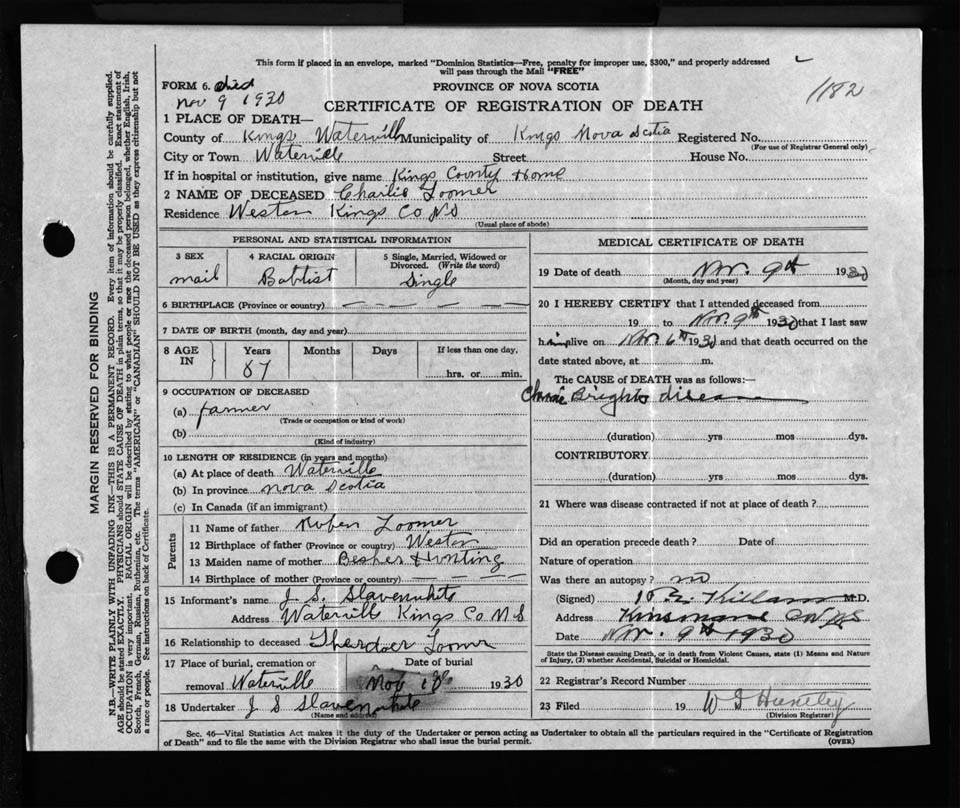 This form if placed in an envelope, marked "Dominion Statistics—Free, penalty for improper use, $300," and properly addressed
will pass through the Mail "FREE"
1182
FORM 6. died
Nov 9 1930
PROVINCE OF NOVA SCOTIA
CERTIFICATE OF REGISTRATION OF DEATH
1 PLACE OF DEATH—
County of Kings Watervill Municipality of Kings Nova Scotia Registered No.
(For use of Registrar General only)
City or Town Waterville Street House No.
If in hospital or institution, give name Kings County Home
2 NAME OF DECEASED Charlie Loomer
Residence Weston Kings Co NS
(Usual place of abode)
PERSONAL AND STATISTICAL INFORMATION
3 SEX 4 RACIAL ORIGIN 5 Single, Married, Widowed or Divorced. (Write the word)
mail Babtist Single
6 BIRTHPLACE (Province or country)
7 DATE OF BIRTH (month, day and year)
8 AGE IN Years Months Days If less than one day,
87 hrs. or min.
9 OCCUPATION OF DECEASED
(a) farmer
(Trade or occupation or kind of work)
(b)
(Kind of industry)
10 LENGTH OF RESIDENCE (in years and months)
(a) At place of death Waterville
(b) In province Nova Scotia
(c) In Canada (if an immigrant)
Parents
11 Name of father Ruben Loomer
12 Birthplace of father (Province or country) Weston
13 Maiden name of mother Hunting
14 Birthplace of mother (Province or country)
15 Informant's name J. S. Slavenwhite
Address Waterville Kings Co N S
16 Relationship to deceased Loomr
17 Place of burial, cremation or Date of burial
removal Waterville Nov 1930
18 Undertaker J S Slavenwhite
(Name and address)
MEDICAL CERTIFICATE OF DEATH
19 Date of death Nov. 9th 1930
(Month, day and year)
20 I HEREBY CERTIFY that I attended deceased from
19 to Nov. 9th 1930 that I last saw
him alive on Nov. 6th 1930 and that death occurred on the
date stated above, at m.
The CAUSE OF DEATH was as follows:—
Chronic Brights disease
(duration) yrs mos dys.
CONTRIBUTORY
(duration) yrs mos dys.
21 Where was disease contracted if not at place of death?
Did an operation precede death? Date of
Nature of operation
Was there an autopsy? no
(Signed) Killam M.D.
Address Kinsmans
Date Nov. 9th 1930
State the Disease causing Death, or in death from Violent Causes, state (1) Means and Nature
of Injury, (2) whether Accidental, Suicidal or Homicidal.
22 Registrar's Record Number
23 Filed 19 W S Huntley
(Division Registrar)
Sec. 46—Vital Statistics Act makes it the duty of the Undertaker or person acting as Undertaker to obtain all the particulars required in the "Certificate of Registration
of Death" and to file the same with the Division Registrar who shall issue the burial permit. (OVER)
MARGIN RESERVED FOR BINDING
N.B.—WRITE PLAINLY WITH UNFADING INK—THIS IS A PERMANENT RECORD. Every item of information should be carefully supplied.
AGE should be stated EXACTLY. PHYSICIANS should STATE CAUSE OF DEATH in plain terms, so that it may be properly classified. Exact statement of
OCCUPATION is very important. RACIAL ORIGIN will be described by stating to what people or race the deceased person belonged, whether English, Irish,
Scotch, French, German, Russian, Ruthenian, etc. The terms "AMERICAN" or "CANADIAN" SHOULD NOT BE USED as they express citizenship but not
a race or people. See instructions on back of Certificate.